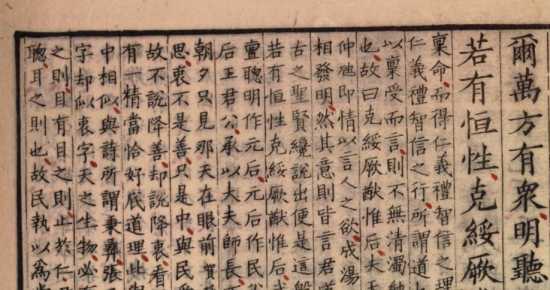 爾萬方有衆明聽
若有恒性克綏厥
稟命而得仁義禮智信之理
仁義禮智信之行所謂道
以稟受而言則不無清濁
也故曰克綏厥猷惟后夫天
仲虺即情以言人之欲成湯
相發明然其意則皆言君道
古之聖賢纔說出便是這般
若有恒性克綏厥猷惟后
亶聰明作元后元后作民
后王君公承以大夫師長不
朝夕只見那天在眼前
思衷不是善只是中與民
故不說降善却說降衷看
有一精當恰好底道理此
中相似與詩所謂秉彝張
字却似衷字天之生物必
之則目有目之則止於仁
聰耳之則也故民執以爲